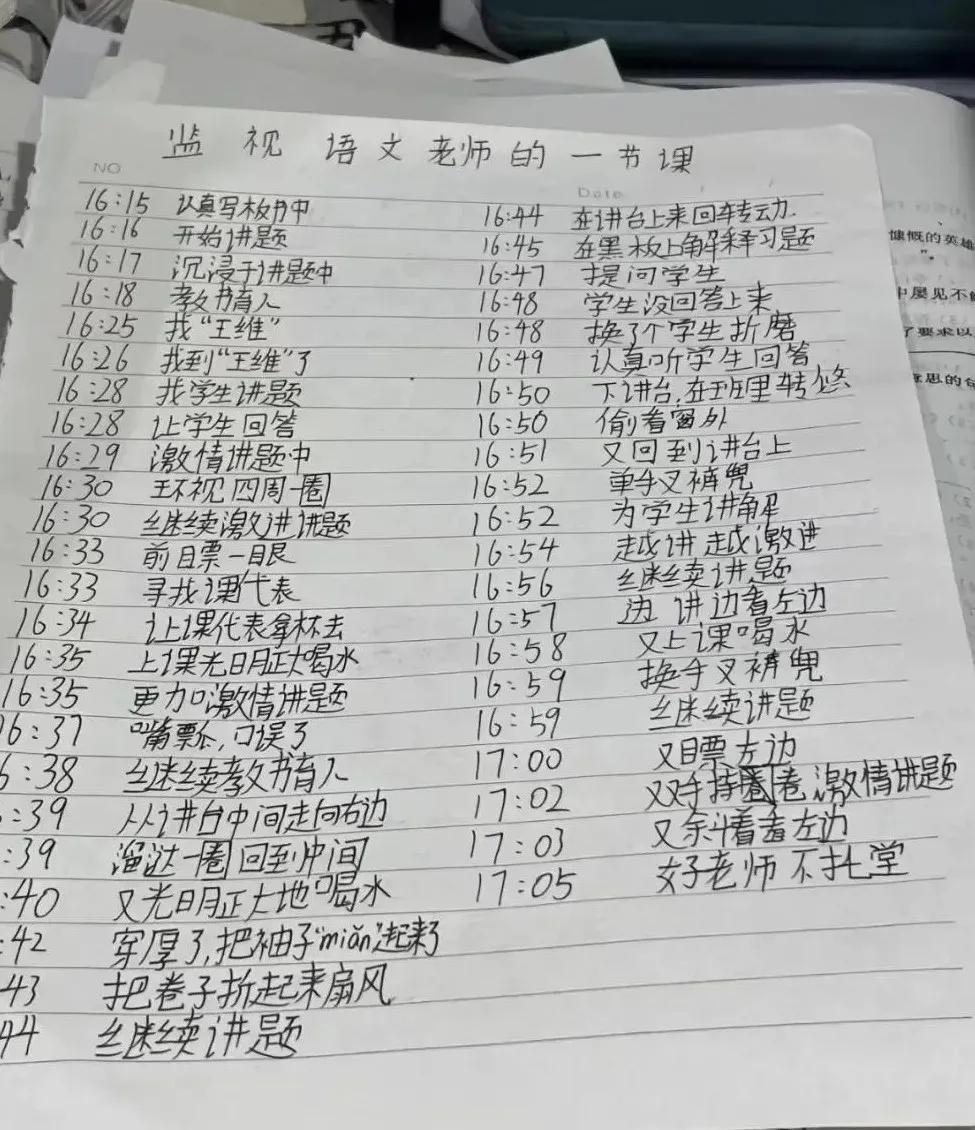 监视语文老师的一节课
NO
Date
16:15 认真写板书中
16:16 开始讲题
16:17 沉浸于讲题中
16:18 教书育人
16:25 找“王维”
16:26 找到“王维”了
16:28 找学生讲题
16:28 让学生回答
16:29 激情讲题中
16:30 环视四周一圈
16:30 继续激进讲题
16:33 前瞟一眼
16:33 寻找课代表
16:34 让课代表拿杯去
16:35 上课光明正大喝水
16:35 更加激情讲题
16:37 嘴瓢,口误了
6:38 继续教书育人
:39 从讲台中间走向右边
:39 溜达一圈回到中间
:40 又光明正大地喝水
:42 穿厚了,把袖子“miǎn”起来了
43 把卷子折起来扇风
44 继续讲题
16:44 在讲台上来回转动
16:45 在黑板上解释习题
16:47 提问学生
16:48 学生没回答上来
16:48 换了个学生折磨
16:49 认真听学生回答
16:50 下讲台,在班里转悠
16:50 偷看窗外
16:51 又回到讲台上
16:52 单手叉裤兜
16:52 为学生讲解
16:54 越讲越激进
16:56 继续讲题
16:57 边讲边看左边
16:58 又上课喝水
16:59 换手叉裤兜
16:59 继续讲题
17:00 又瞟左边
17:02 双手持圈卷激情讲题
17:03 又斜看着左边
17:05 好老师不拖堂
慷慨的英雄
中屡见不
了要求以
意思的句